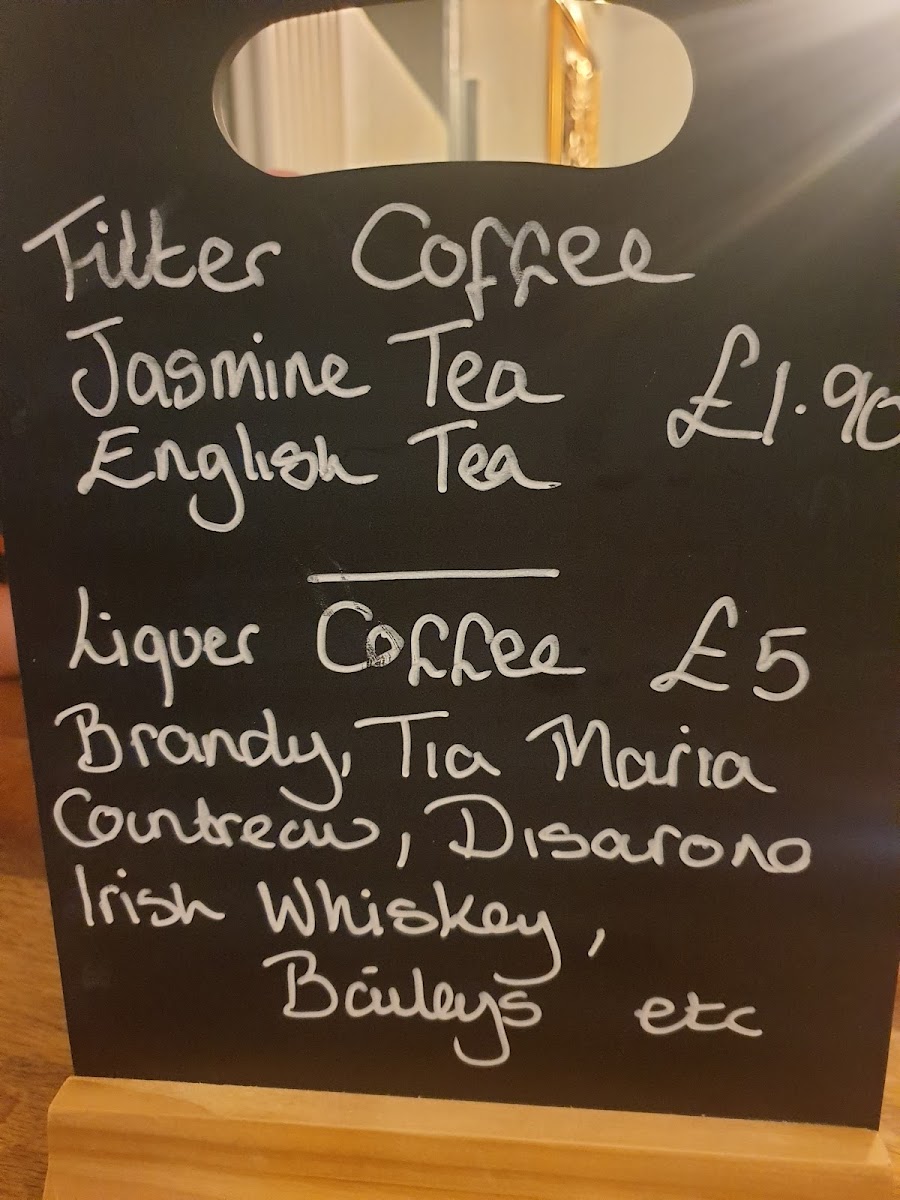 Filter Coffee
Jasmine Tea £1.90
English Tea
Liquer Coffee £5
Brandy, Tia Maria
Countreau, Disarono
Irish Whiskey,
Baileys etc